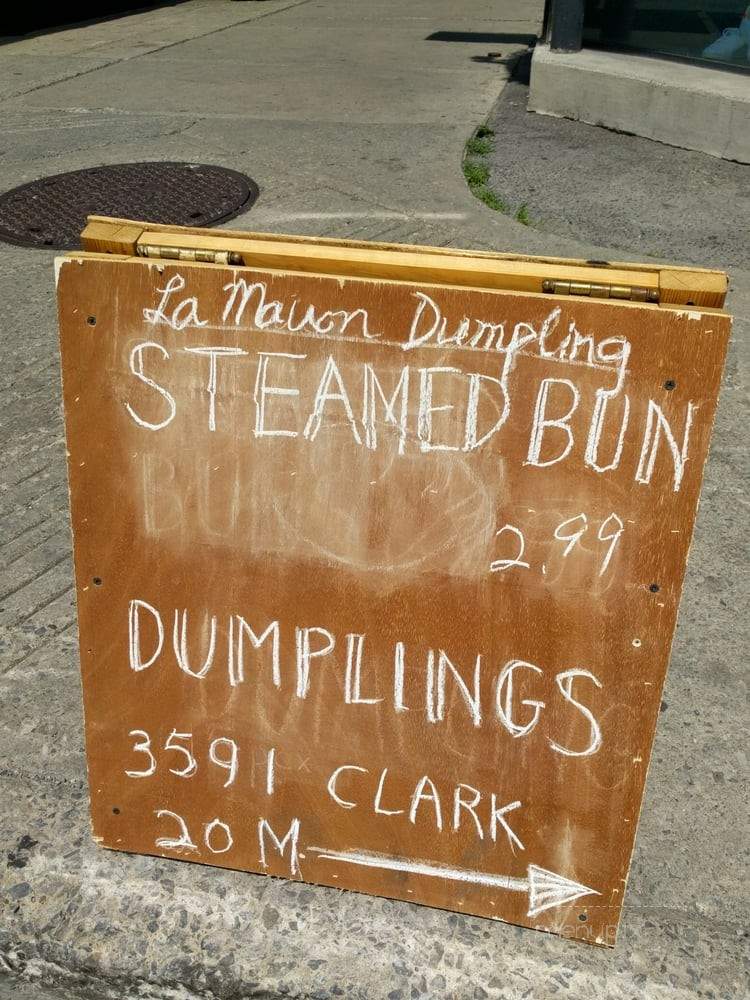 La Maison Dumpling
STEAMED BUN
BUN
2.99
DUMPLINGS
3591 CLARK
20 M.